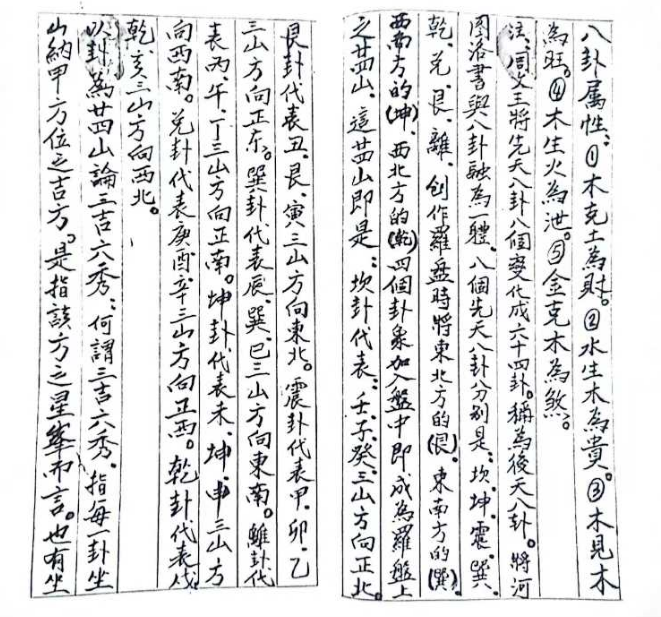 八卦属性：①木克土為財。②水生木為貴。③木見木
為旺。④木生火為泄。⑤金克木為煞。
注：周文王將先天八卦八個变化成六十四卦。稱為後天八卦。將河
图洛書與八卦融為一體，八個先天八卦分别是：坎、坤、震、巽、
乾、兑、艮、離，創作羅盤時將東北方的(艮)、東南方的(巽)、
西南方的(坤)、西北方的(乾)四個卦象加入盤中即成為羅盤上
之廿四山，這廿四山即是：坎卦代表：壬、子、癸、三山方向正北。
艮卦代表丑、艮、寅三山方向東北。震卦代表甲、卯、乙
三山方向正东。巽卦代表辰、巽、巳三山方向東南。離卦代
表丙、午、丁三山方向正南。坤卦代表未、坤、申三山方
向西南。兑卦代表庚酉辛三山方向正西。乾卦代表戌
乾、亥三山方向西北。
以卦為廿四山論三吉六秀：何謂三吉六秀、指每一卦坐
山納甲方位之吉方。是指該方之星峯而言。也有坐